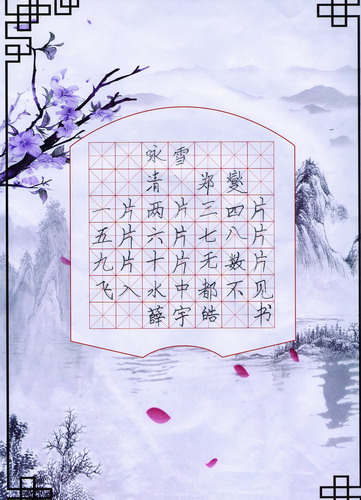 咏雪
清 郑燮
一片两片三四片
五片六片七八片
九片十片无数片
飞入水中都不见
薛宇皓 书